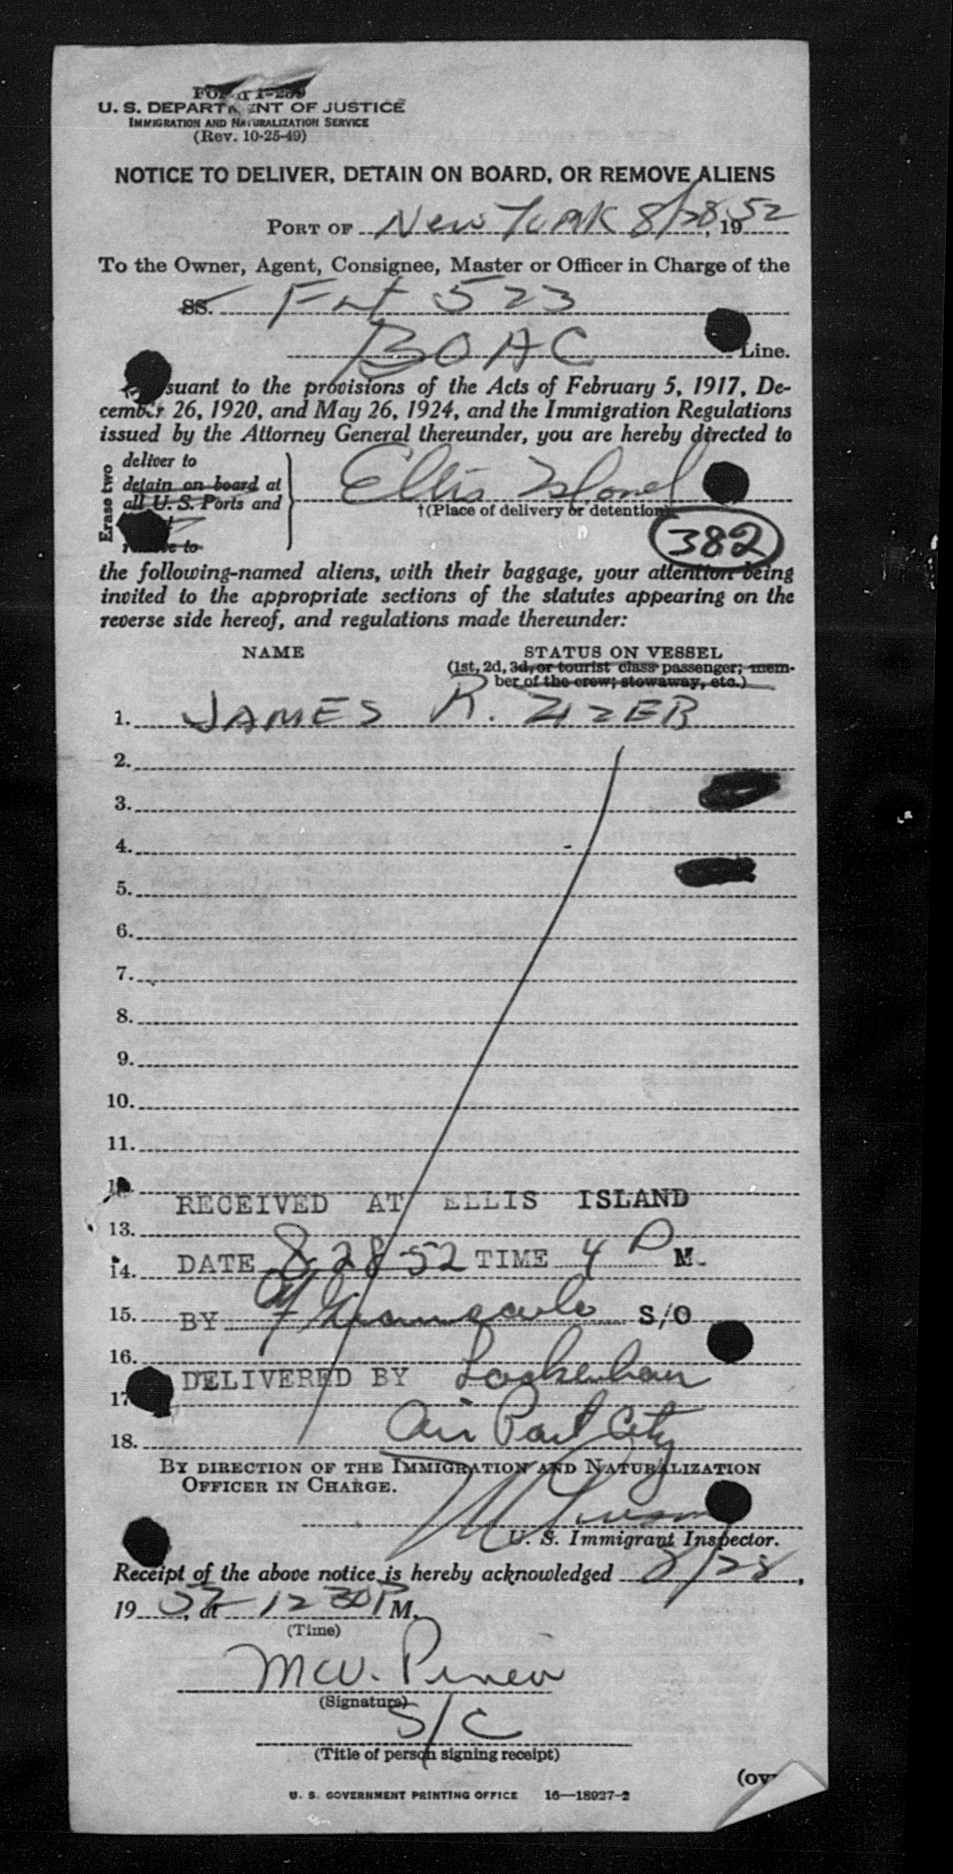 FORM I-259
U. S. DEPARTMENT OF JUSTICE
IMMIGRATION AND NATURALIZATION SERVICE
(Rev. 10-25-49)
NOTICE TO DELIVER, DETAIN ON BOARD, OR REMOVE ALIENS
PORT OF New York 8/28, 1952
To the Owner, Agent, Consignee, Master or Officer in Charge of the
SS. Flt 523
BOAC Line.
suant to the provisions of the Acts of February 5, 1917, De-
cember 26, 1920, and May 26, 1924, and the Immigration Regulations
issued by the Attorney General thereunder, you are hereby directed to
Erase two
deliver to
detain on board at
all U. S. Ports and
remove to
Ellis Island
†(Place of delivery or detention)
382
the following-named aliens, with their baggage, your attention being
invited to the appropriate sections of the statutes appearing on the
reverse side hereof, and regulations made thereunder:
NAME STATUS ON VESSEL
(1st, 2d, 3d, or tourist class passenger; mem-
ber of the crew; stowaway, etc.)
1. JAMES R. ZIZER
2.
3.
4.
5.
6.
7.
8.
9.
10.
11.
12.
RECEIVED AT ELLIS ISLAND
13.
DATE 8 28 52 TIME 4 P M.
14.
15. BY S/O
16.
DELIVERED BY
17.
Air Port City
18.
BY DIRECTION OF THE IMMIGRATION AND NATURALIZATION
OFFICER IN CHARGE.
U. S. Immigrant Inspector.
Receipt of the above notice is hereby acknowledged 8/28,
19 52, at 12 30 P M.
(Time)
(Signature)
S/C
(Title of person signing receipt)
(ov
U. S. GOVERNMENT PRINTING OFFICE 16—18927-2